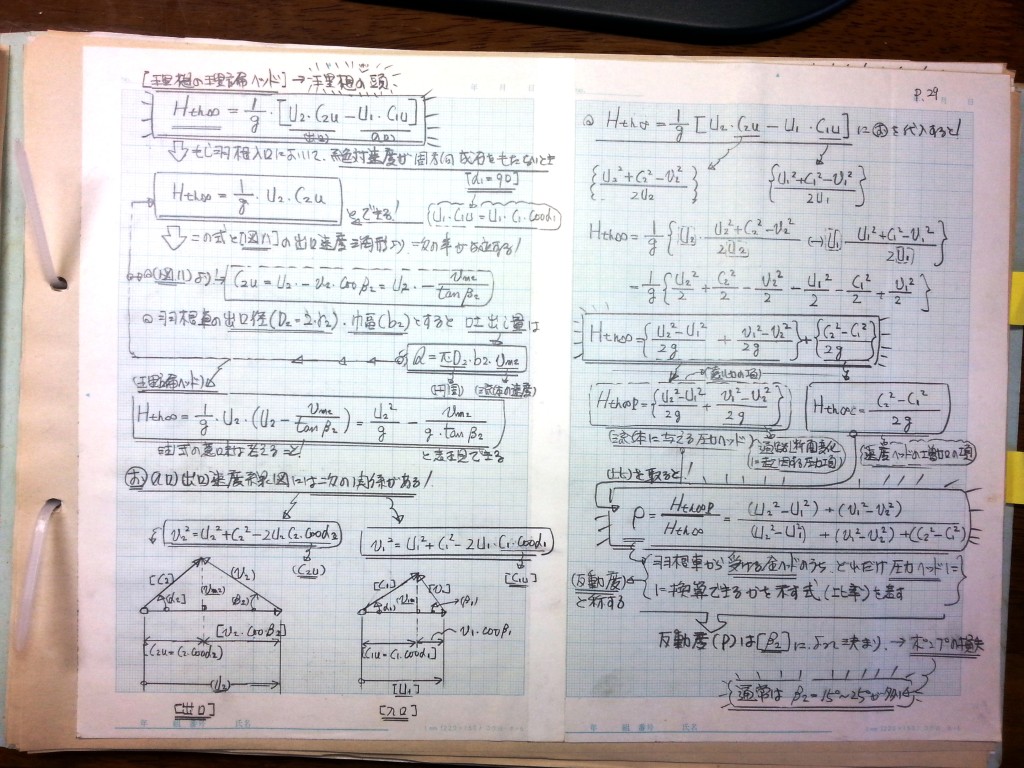 [理想の理論ヘッド] → 理想の頭
Hth∞ = 1/g・[U2・C2u − U1・C1u]
出口 入口
もし羽根入口において、絶対速度が円周方向成分をもたないとき
[α1=90]
Hth∞ = 1/g・U2・C2u
とできる!
U1・C1u = U1・C1・cosα1
この式と[図11]の出口速度三角形より、次の率が成立する!
(図11)より! C2u = U2・−v2・cosβ2 = U2・− vm2/tanβ2
羽根車の出口径(D2=2・r2)、巾幅(b2)とすると 吐出し量は
Q = πD2・b2・vm2
(円周) (流体の速度)
(理論ヘッド)
Hth∞ = 1/g・U2・(U2 − vm2/tanβ2) = U2²/g − vm2/g・tanβ2
と表現できる
あ 入口出口速度線図には次の関係がある!
v2² = U2² + C2² − 2U2・C2・cosα2
(C2u)
v1² = U1² + C1² − 2U1・C1・cosα1
[C1u]
[C2] (v2)
[α2] [vm2] [β2]
[v2・cosβ2]
C2u = C2・cosα2
(U2)
[出口]
[C1] [v1]
[α1] (β1)
v1・cosβ1
C1u = C1・cosα1
[U1]
[入口]
P.29
Hth∞ = 1/g [U2・C2u − U1・C1u] に あ を代入すると!
{(U2²+C2²−v2²)/2U2} {(U1²+C1²−v1²)/2U1}
Hth∞ = 1/g {[U2]・(U2²+C2²−v2²)/2[U2] (−) [U1]・(U1²+C1²−v1²)/2[U1]}
= 1/g {U2²/2 + C2²/2 − v2²/2 − U1²/2 − C1²/2 + v1²/2}
Hth∞ = {(U2²−U1²)/2g + (v1²−v2²)/2g} + {(C2²−C1²)/2g}
Hth∞P = {(U2²−U1²)/2g + (v1²−v2²)/2g}
Hth∞c = (C2²−C1²)/2g
流体に与える圧力ヘッド
速度ヘッドの増加の項
(比)を取ると!
ρ = Hth∞P/Hth∞ = ((U2²−U1²)+(v1²−v2²))/((U2²−U1²)+(v1²−v2²)+(C2²−C1²))
(反動度)と称する
羽根車から受ける全ヘッドのうち どれだけ圧力ヘッドに
に換算できるかを示す式 (比率)を表す
反動度(ρ)は[β2]によって決まり、→ ポンプの損失
通常は β2=15°〜25°が多い
年 組 番号 氏名
年 組 番号 氏名